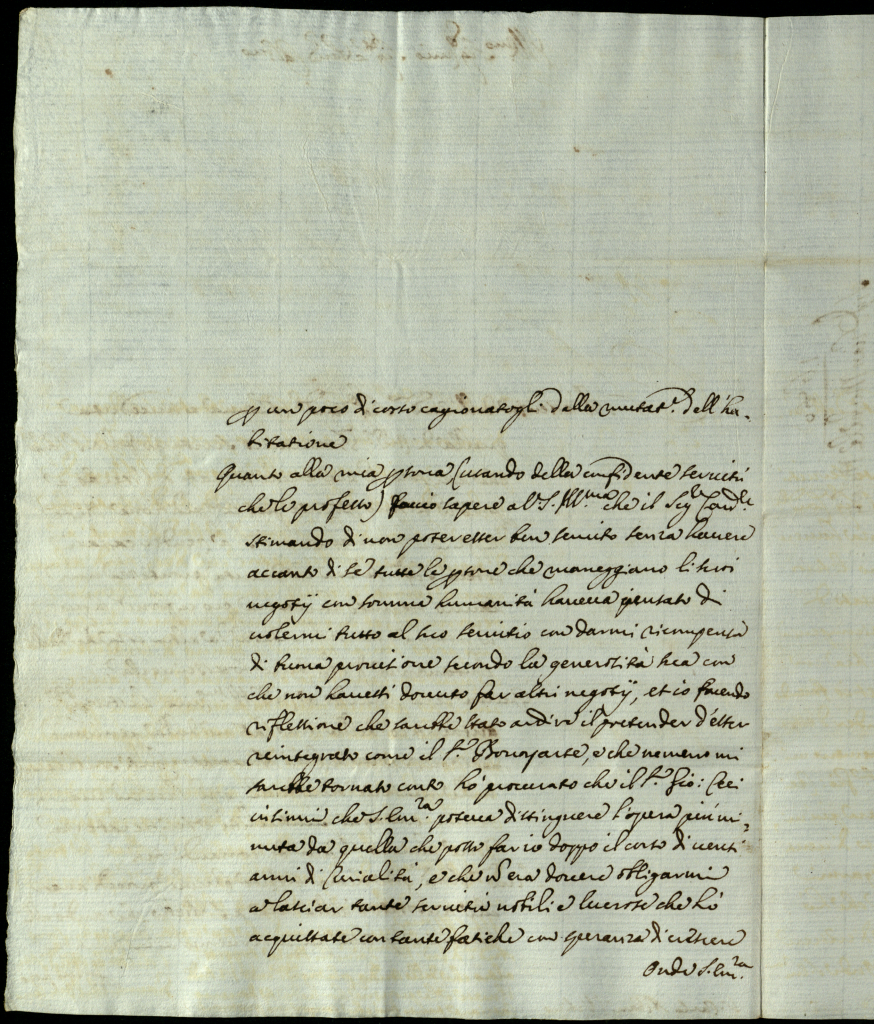 p un poco di corso cagionatogli dalla mutat.e dell'ha-
bitatione
Quanto alla mia psona (usando della confidente servitù
che le professo) faccio sapere a V.S. Ill.ma che il Sig.r Card.le
stimando di non poter esser ben servito senza havere
accanto di se tutte le psone che maneggiano li suoi
negotij con somma humanità haveva pensato di
volermi tutto al suo servitio con darmi ricompensa
di buona provisione secondo la generosità sua con
che non havessi dovuto far altri negotij, et io facendo
riflessione che sarebbe stato ardire il pretender d'esser
reintegrato come il S.r Bonaparte, e che nemeno mi
sarebbe tornato conto hò procurato che il S.r Gio:
intimi che S. Em.za poteva distinguere l'opera più mi-
nuta da quella che posso far io doppo il corso di venti
anni di Curialità, e che nõ era dovere obligarmi
a lasciar tante servitù nobili e lucrose che hò
acquistate con tante fatiche con speranza di
Onde S. Em.za